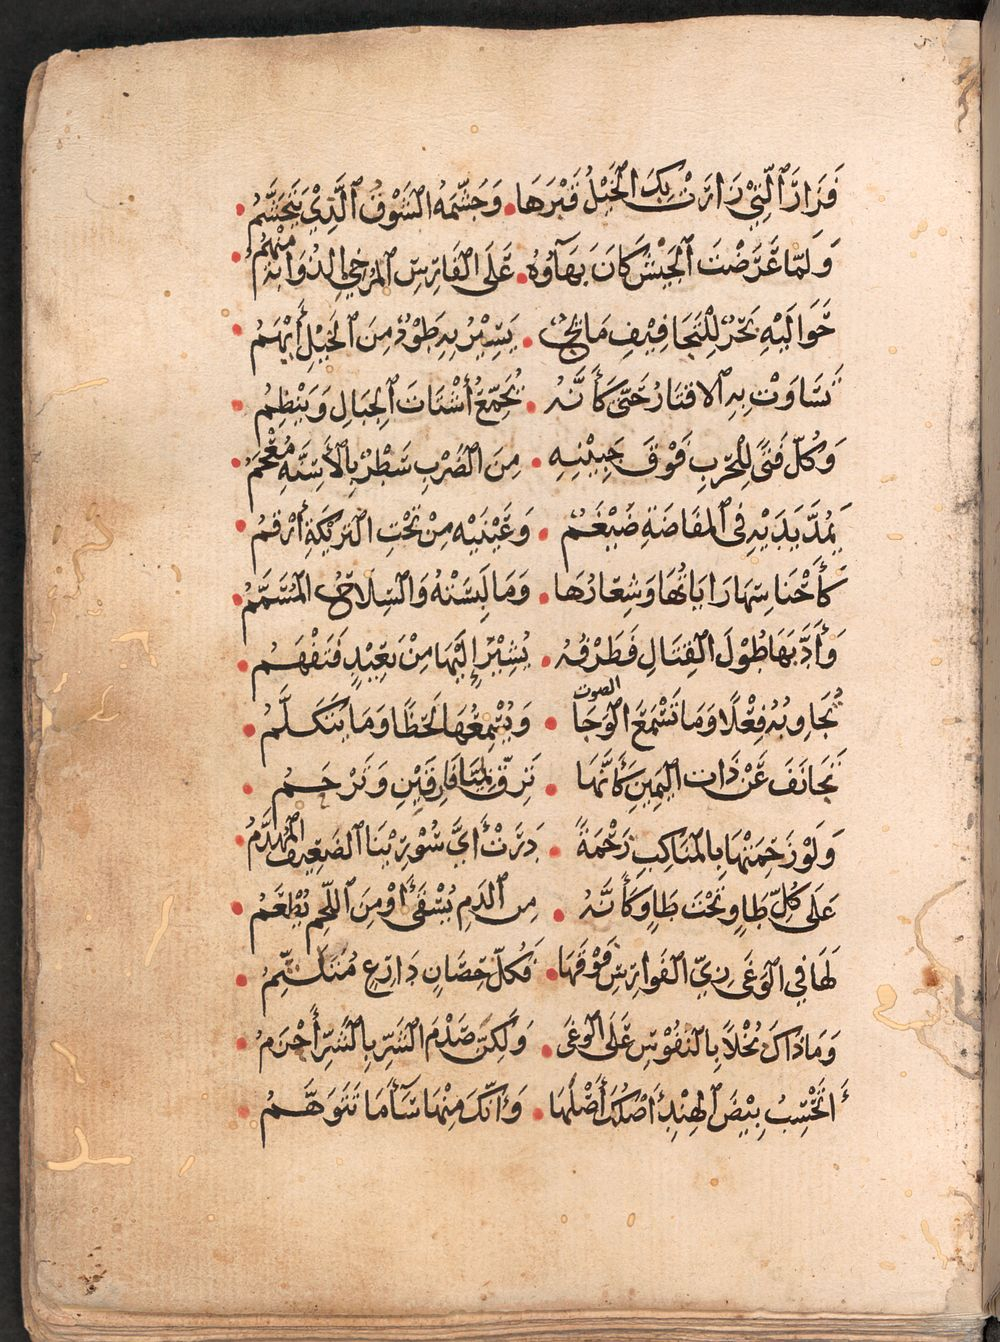 فَزَارَ ٱلَّتِيْ زَارَتْ بِكَ الْخَيْلُ قَبْرَهَا • وَجَشَّمَهُ الشَّوْقُ ٱلَّذِيْ يَتَجَشَّمُ •
وَلَمَّا عَرَضْتَ ٱلْجَيْشَ كَانَ بَهَآؤُهُ • عَلَى الْفَارِسِ ٱلْمُرْخِي الذُّوَابَةِ مِنْهُمُ •
حَوَالَيْهِ بَحْرٌ لِلتَّجَافِيْفِ مَايِجٌ • يَسِيْرُ بِهِ طَوْدٌ مِنَ ٱلْخَيْلِ أَيْهَمُ •
تَسَاوَتْ بِهِ ٱلاقتَارُ حَتَّى كَأَنَّهُ • يُجَمِّعُ أَشْتَاتَ ٱلْجِبَالِ وَيَنْظِمُ •
وَكُلُّ فَتًى لِلْحَرْبِ فَوْقَ جَبِيْنِهِ • مِنَ الضَّرْبِ سَطْرٌ بِالأَسِنَّةِ مُعْجَمُ •
يَمُدُّ يَدَيْهِ فِي ٱلْمفَاضَةِ ضَيْغَمٌ • وَعَيْنَيْهِ مِنْ تَحْتِ التَّرِيْكَةِ أَرْقَمُ •
كَأَجْنَاسِهَا رَايَاتُهَا وَشِعَارُهَا • وَمَا لَبِسَتْهُ وَالسِّلاحُ الْمُسَمَّمُ •
وَأَدَّبَهَا طُوْلَ الْقِتَالِ فَطَرْفُهُ • يُشِيْرُ إِلَيْهَا مِنْ بَعِيْدٍ فَتَفْهَمُ •
الصوت
تُجَاوِبُهُ فِعْلًا وَمَا تَسْمَعُ الْوَحَا • وَيُسْمِعُهَا لَحْظًا وَمَا يَتَكَلَّمُ •
تَجَانَفَ عَنْ ذَات الْيَمِيْنِ كَأَنَّهَا • تَرِقُّ لِمَيَّافَارِقِيْنِ وَتَرْحَمُ •
وَلَوْ زَحَمَتْهَا بِالْمَنَاكِبِ زَحْمَةً • دَرَتْ أَيَّ سُوْرَيْنَا ٱلضَّعِيْفُ الْمُهَدَّمُ •
عَلَى كُلِّ طَاوٍ تَحْتَ طَاوٍ كَأَنَّهُ • مِن ٱلدَّمِ يُسْقَى أَوْ مِنَ اللَّحْمِ يُطْعَمُ •
لَهَا فِي الْوَغَى زِيُّ الْفَوَارِسِ فَوْقَهَا • فَكُلُّ حِصَانٍ دَارِعٍ مُتَلَثِّمُ •
وَمَا ذَاكَ بُخْلاً بِالنُّفُوْسِ عَلَى الْوَغَى • وَلَكِنَّ صَدْمَ الشَّرِّ بِالشَّرِّ أَحْزَمُ •
أَتَحْسِبُ بِيْضُ ٱلْهِنْدِ أَصْلُكَ أَصْلُهَا • وَأَنَّكَ مِنْهَا سَآءَ مَا تَتَوَهَّمُ •